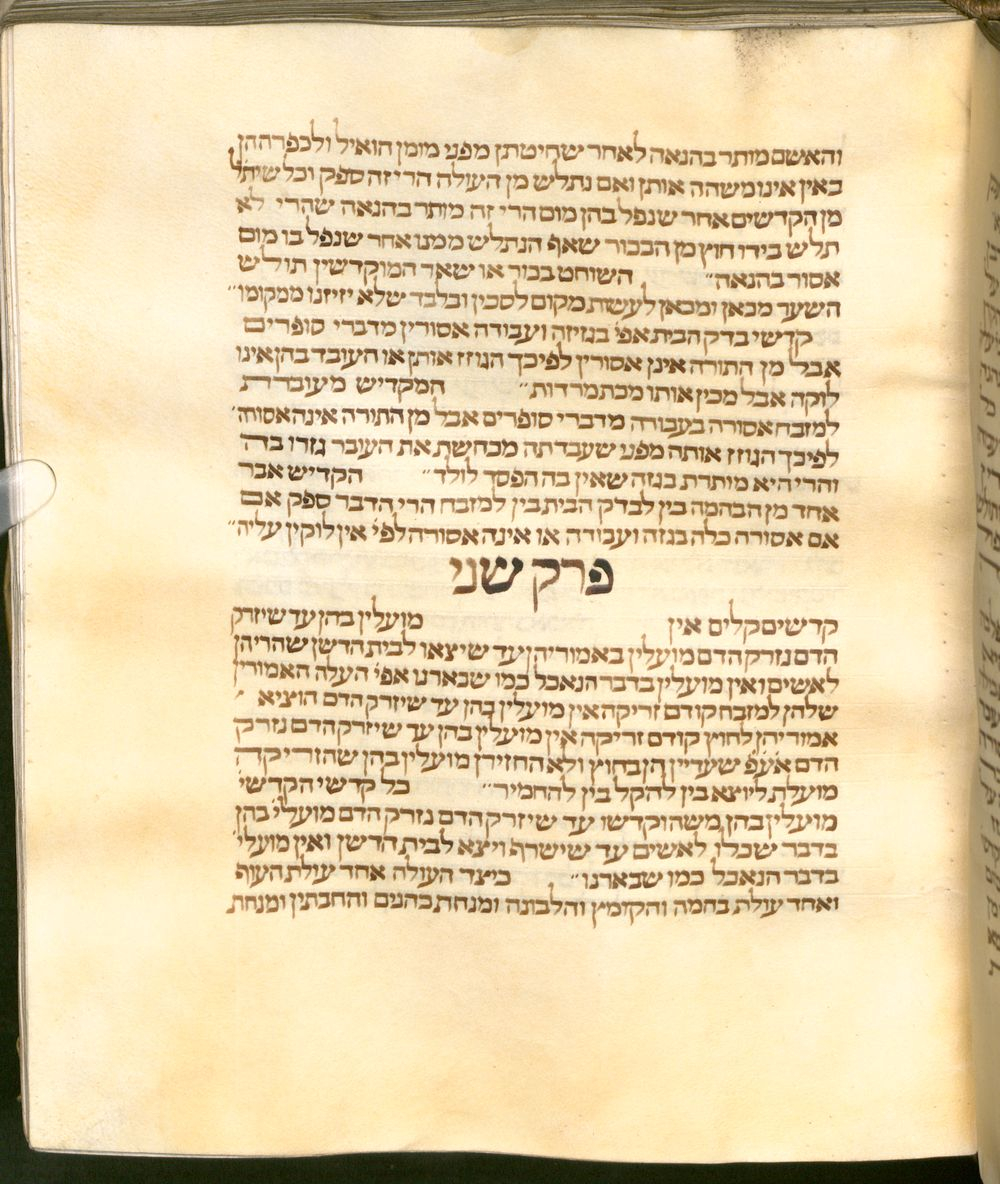 והאשם מותר בהנאה לאחר שחיטתן מפני מומן הואיל ולכפרה הן
באין אינו משהה אותן ואם נתלש מן העולה הרי זה ספק וכל שיתלש
מן הקדשים אחר שנפל בהן מום הרי זה מותר בהנאה שהרי לא
תלש בידו חוץ מן הבכור שאף הנתלש ממנו אחר שנפל בו מום
אסור בהנאה״ השוחט בכור או שאר המוקדשין תולש
השער מכאן ומכאן לעשות מקום לסכין ובלבד שלא יזיזנו ממקומו״
קדשי בדק הבית אפי׳ בגיזה ועבודה אסורין מדברי סופרים
אבל מן התורה אינן אסורין לפיכך הגוזז אותן או העובד בהן אינו
לוקה אבל מכין אותו מכת מרדות״ המקדיש מעוברת
למזבח אסורה בעבודה מדברי סופרים אבל מן התורה אינה אסורה׳
לפיכך הגוזז אותה מפני שעבדתה מכחשת את העובר גזרו בה
והרי היא מותרת בגזה שאין בה הפסד לולד״ הקדיש אבר
אחד מן הבהמה בין לבדק הבית בין למזבח הרי הדבר ספק אם
אם אסורה כלה בגזה ועבודה או אינה אסורה לפי׳ אין לוקין עליה״
פרק שני
קדשים קלים אין מועלין בהן עד שיזרק
הדם נזרק הדם מועלין באמוריהן עד שיצאו לבית הדשן שהרי הן
לאשים ואין מועלין בדבר הנאכל כמו שבארנו אפי׳ העלה האמורין
שלהן למזבח קודם זריקה אין מועלין בהן עד שיזרק הדם הוציא
אמוריהן לחוץ קודם זריקה אין מועלין בהן עד שיזרק הדם נזרק
הדם אעפ שעדיין הן בחוץ ולא החזירן מועלין בהן שהזריקה
מועלת ליוצא בין להקל בין להחמיר״ כל קדשי הקדשי׳
מועלין בהן משהוקדשו עד שיזרק הדם נזרק הדם מועלי׳ בהן
בדבר שכלו לאשים עד שישרף ויצא לבית הדשן ואין מועלי׳
בדבר הנאכל כמו שבארנו״ כיצד העולה אחד עולת העוף
ואחד עולת בהמה והקומץ והלבונה ומנחת כהנים והחבתין ומנחת